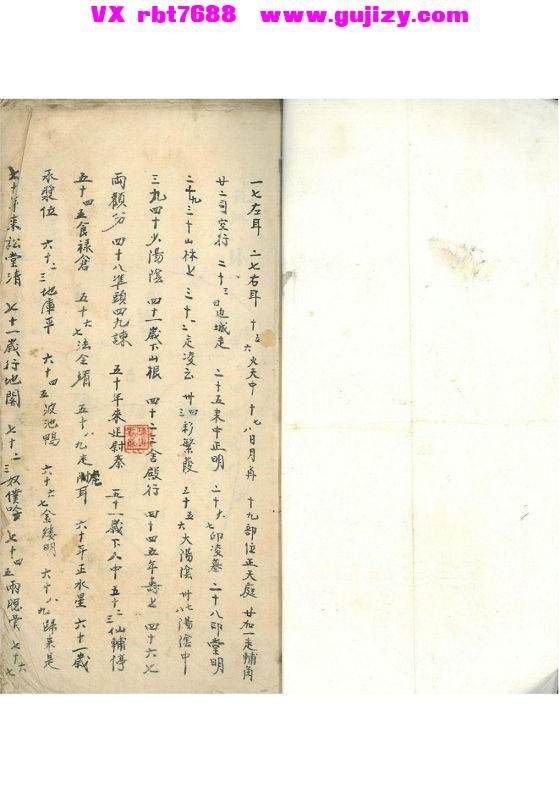 VX rbt7688 www.gujizy.com
一七左耳 二七右耳 十五六火天中 十七八日月再 十九部位正天庭 廿加一走輔角
廿二司空行 二十三四边城走 二十五来中正明 二十六七卯凌墓 二十八印堂明
二十九三十山林上 三十一二走凌云 卅三四彩繁霞 三十五六太陽陰 卅七八陽陰中
三九四十火陽陰 四十一歲下山根 四十二三舍殿行 四十四五年壽上 四十六七
兩顴分 四十八準頭四九諫 五十年來廷尉奏 五十一歲下人中 五十二三仙輔停
五十四五食禄倉 五十六七法全 五十八九走虎耳 六十年正水星 六十一歲
承漿位 六十二三地庫平 六十四五波池鴨 六十六七金缕明 六十八九歸来是
七十年来訟堂清 七十一歲行地閣 七十二三奴僕 七十四五兩腮骨 七十六七